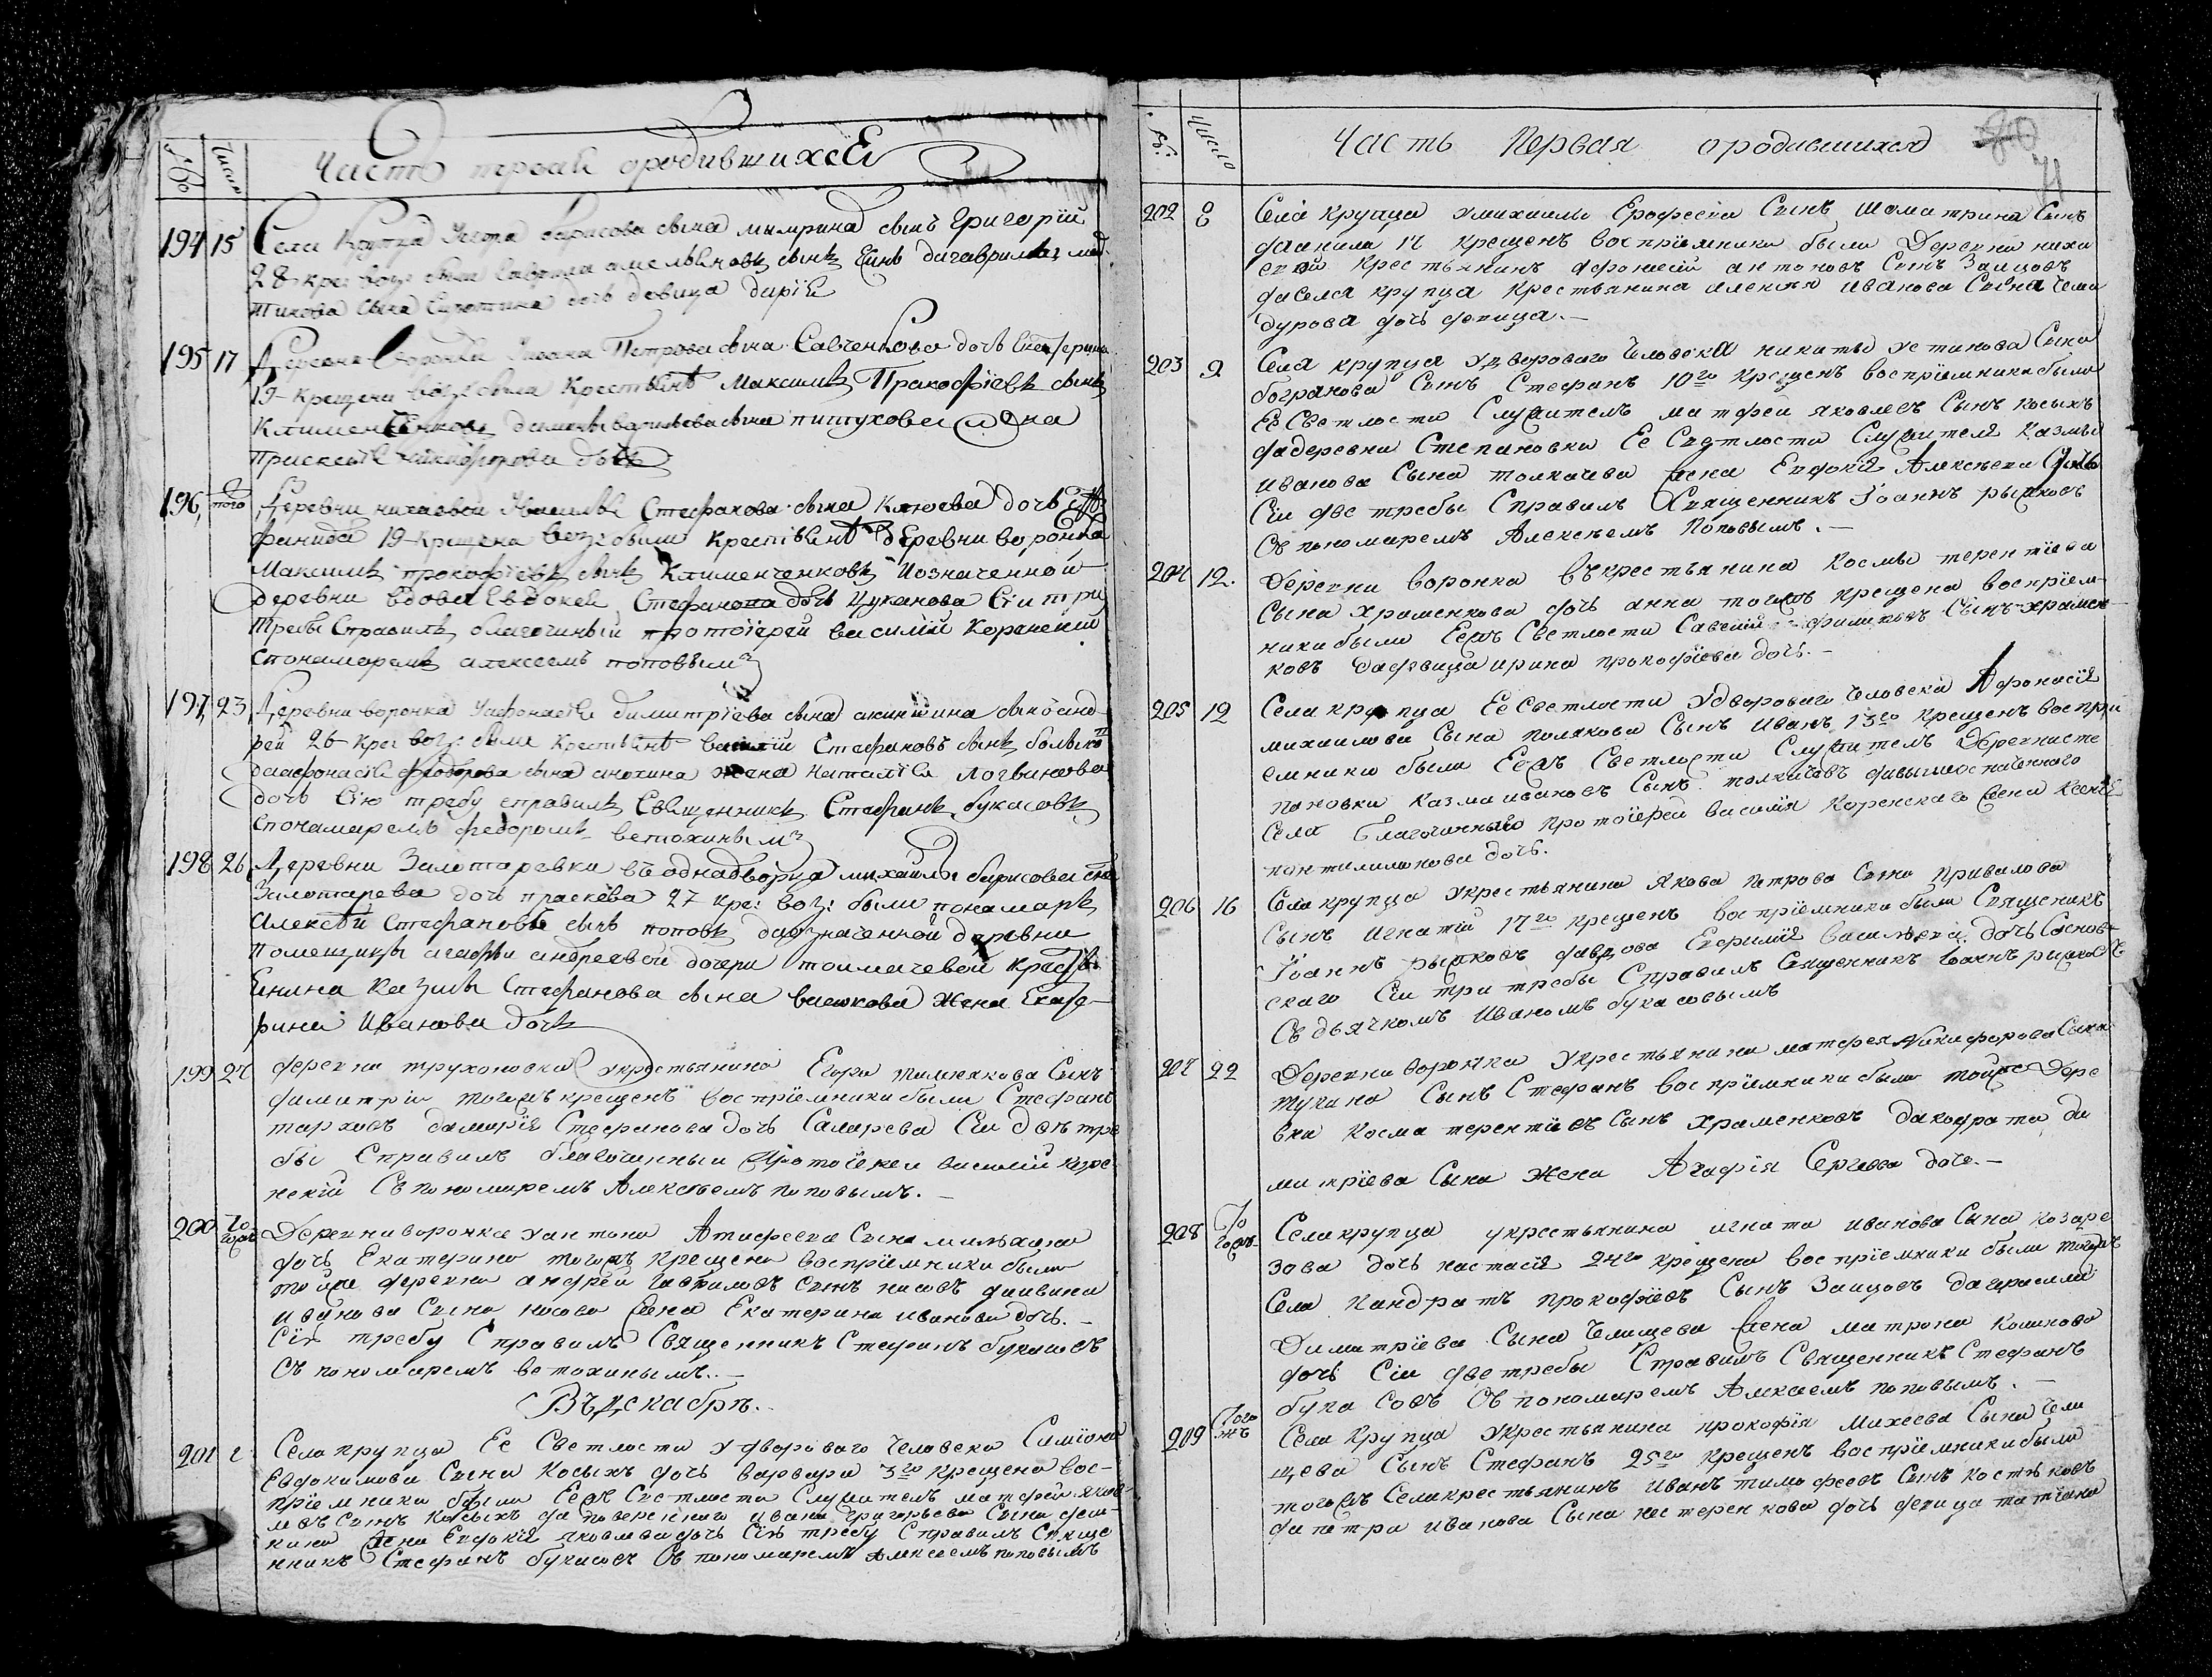 Часть первая ородившихся
194 15 Села Крупца Уегора борисова сына мымрина сынъ Григорїй
28 крещ восп были Гаврила сынъ
сына дочь девица дарїя
195 17 Деревни Воронка Уивана Петрова сына Савченкова дочь Екатерина
19 крещена восп были Крестьянинъ Максимъ Прокофїевъ сынъ
Клименченковъ сына пиштухова жена
дочь
196 того Деревни нихаевой Стефанова сына Клюева дочь
19 крещена восп были крестьянинъ деревни воронка
Максимъ прокофїевъ сынъ Клименченковъ Иозначенной
деревни вдова Евдокея Стефанова дочь Цуканова Сїи три
требы Справилъ благочинный протоїерей василїй Коренский
спонамаремъ алексеемъ поповымъ
197 23 Деревни воронка Уафонасїя димитрїева сына сынъ анд
рей 26 крещ восп были крестьянинъ василїй Стефановъ сынъ
даафонасїя феодорова сына анохина жена наталїя логвинова
дочь Сїю требу справилъ Священникъ Стефанъ букасовъ
спонамаремъ федоромъ ветохинымъ
198 26 Деревни Золотаревки въ однадворца михайлы борисова сна
Золотарева дочь праскева 27 кре: восп: были понамарь
Алексей Стефановъ сынъ поповъ даозначенной деревни
Помещицы агафьи андреевой дочери толмачевой крестья
янина Казмы Стефанова сына жена Екате-
рина Иванова дочь
199 27 деревни трухоновки укрестьянина Егора Сынъ
димитрїи тогожъ крещенъ воспрїемники были Стефанъ
дамарїя Стефанова дочь Сїи двѣ тре
бы Справилъ благочинный Протоїерей василїй коре
нскїй Спономаремъ Алексѣемъ поповымъ.
200 Того жъ Деревни воронка уантона Сына
дочь Екатерина тогожъ крещена воспрїемники были
тойже деревни андрей гавриловъ сынъ носовъ
иванова сына носова жена Екатерина иванова дочь.
Сїю требу Справилъ Священникъ Стефанъ букасовъ
Съ пономаремъ ветохинымъ.
Въ декабрѣ.
201 2 Села крупца Ее Светлости удвороваго человека Симїона
Евдокимова Сына Косыхъ дочь варвара 3го крещена вос-
прїемники были Еежъ Светлости Служитель матфей яков
левъ Сынъ Косыхъ да ивана Григорьева Сына
жена Евдокїя яковлева дочь Сїю требу Справилъ Свяще
нникъ Стефанъ букасовъ Съ пономаремъ Алексеемъ поповымъ
Число Часть Первая ородившихся 80
71
202 8 Села крупца умихайлы Ерофеева Сына Сынъ
данила 14 крещенъ воспрїемники были Деревни ниха
евой крестьянинъ афонасїй антоновъ Сынъ Заицовъ
даСела крупца Крестьянина алексея иванова Сына Чема
дурова дочь девица.
203 9 Села крупца удвороваго Человека никиты устинова Сына
богранова Сынъ Стефанъ 10го крещенъ воспрїемники были
Ее Светлости Служитель матфей яковлевъ Сынъ косыхъ
дадеревни Степановки Ее Светлости Служителя Казмы
иванова Сына толкачева жена Евдокїя Алексѣева дочь
Сїи две требы Справилъ Священникъ Іоаннъ рышковъ
Съ пономаремъ Алексѣемъ Поповымъ.
204 12. Деревни воронка въкрестьянина Космы терентїева
Сына храменкова дочь анна тогожъ крещена воспрїем-
ники были Еежъ Светлости Савелїй филиповъ Сынъ храмен-
ковъ дадевица ирина прокофїева дочь.
205 12 Села крупца Ее Светлости удвороваго Человека Афонасїя
михаилова Сына полякова Сынъ Иванъ 13го крещенъ воспри
емники были Еежъ Светлости Служитель Деревни Сте
пановки Казма ивановъ Сынъ толкачевъ давышеозначенного
Села благочиннаго протоїерея василїя Коренскаго жена Ксенїя
пантилимонова дочь.
206 16 Села крупца укрестьянина Якова Петрова Сына Привалова
Сынъ игнатїй 17го крещенъ воспрїемники были Священикъ
Іоаннъ рышковъ давдова Ефимїя васильева дочь Соснов-
скаго Сїи три требы Справилъ Священникъ Іоаннъ рышковъ
Съ дьячкомъ Иваномъ букасовымъ
207 22 Деревни воронка укрестьянина матфея Никифорова Сына
Сынъ Стефанъ воспрїемники были тойже Дере
вни Косма терентїевъ Сынъ Храменковъ дакодрата ди
митрїева Сына жена Агафїя Сергѣева дочь.
208 Того жъ Села крупца укрестьянина игната иванова Сына козаре
зова дочь настасїя 24го крещена воспрїемники были тогожъ
Села Кандратъ прокофїевъ Сынъ Заицовъ дагерасима
Димитрїева Сына Челищева жена матрона
дочь Сїи две требы Справилъ Священникъ Стефанъ
букасовъ Съ пономаремъ Алексеемъ поповымъ.
209 Того жъ Села Крупца укрестьянина прокофїя михеева Сына Чели
щева Сынъ Стефанъ 25го крещенъ воспрїемники были
тогожъ Села крестьянинъ иванъ тимофеевъ Сынъ костиковъ
да петра иванова Сына нестеренкова дочь девица татїана